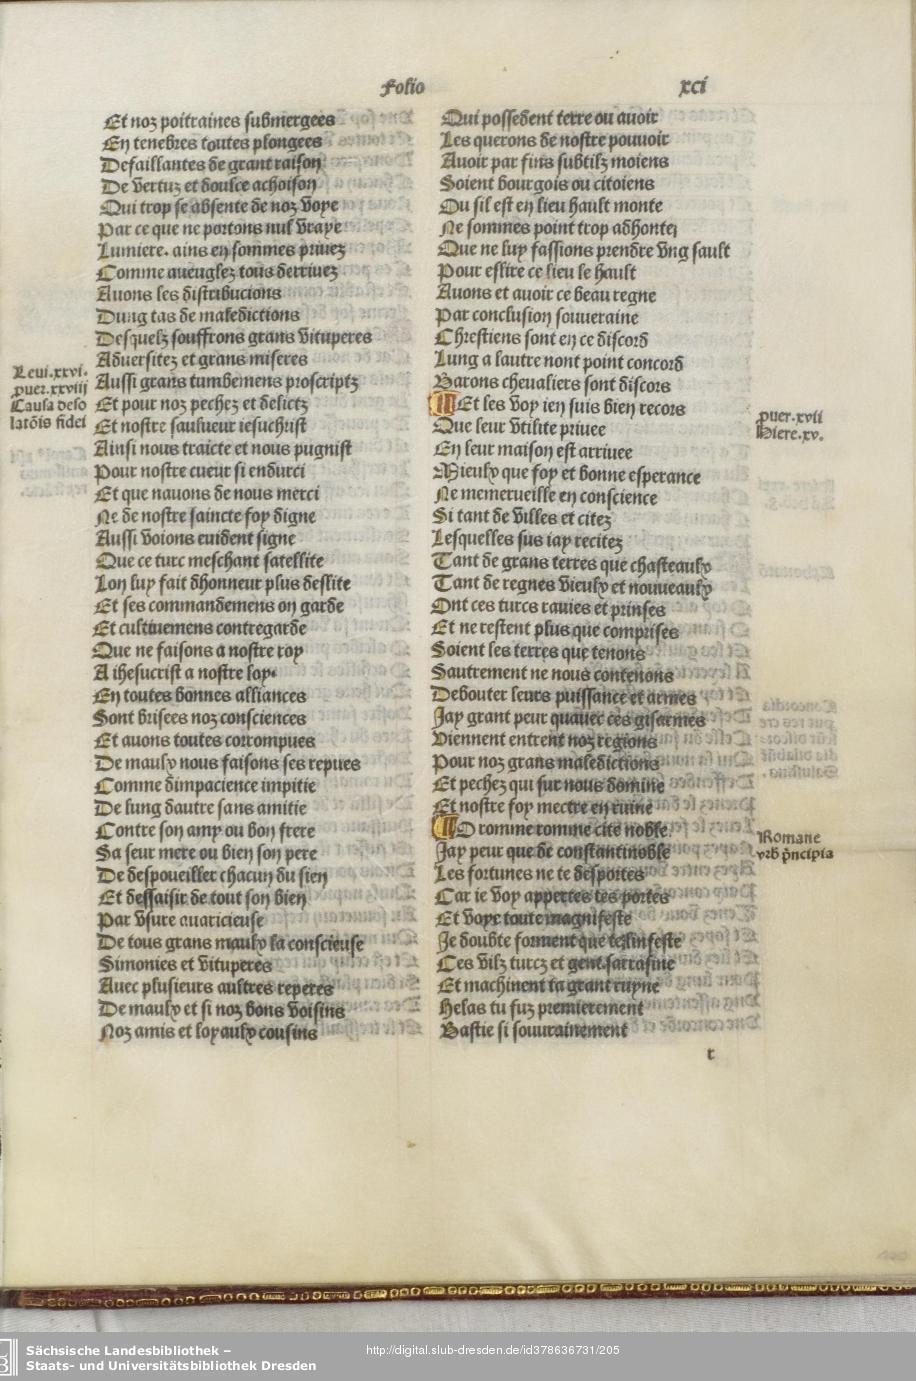 Folio xci
Et noz poitraines submergees
En tenebres toutes plongees
Defaillantes de grant raison
De vertuz et doulce achoison
Qui trop se absente de noz voye
Par ce que ne portons nul vraye
Lumiere. ains en sommes privez
Comme aueuglez tous derriuez
Auons les distribucions
Dung tas de maledictions
Desquelz souffrons grans vituperes
Aduersitez et grans miseres
Aussi grans tumbemens proscriptz
Et pour noz pechez et delictz
Et nostre saulueur iesuchrist
Ainsi nous traicte et nous pugnist
Pour nostre cueur si endurci
Et que nauons de nous merci
Ne de nostre saincte foy digne
Aussi voions euident signe
Que ce turc meschant satellite
Lon luy fait dhonneur plus deslite
Et ses commandemens on garde
Et cultiuemens contregarde
Que ne faisons a nostre roy
A ihesucrist a nostre loy.
En toutes bonnes alliances
Sont brisees noz consciences
Et auons toutes corrompues
De maulx nous faisons ses repues
Comme dimpacience impitie
De lung dautre sans amitie
Contre son amy ou bon frere
Sa seur mere ou bien son pere
De despoueiller chacun du sien
Et dessaisir de tout son bien
Par vsure auaricieuse
De tous grans maulx la conscieuse
Simonies et vituperes
Auec plusieurs aultres reperes
De maulx et si noz bons voisins
Noz amis et loyaulx cousins
Leui.xxvi.
puer.xxviii
Causa deso
latōis fidei
Qui possedent terre ou auoir
Les querons de nostre pouuoir
Auoir par fins subtilz moiens
Soient bourgois ou citoiens
Ou sil est en lieu hault monte
Ne sommes point trop adhonte
Que ne luy fassions prendre vng sault
Pour eslire ce lieu le hault
Auons et auoir ce beau regne
Par conclusion souueraine
Chrestiens sont en ce discord
Lung a lautre nont point concord
Barons cheualiers sont discors
Et les voy ien suis bien recors
Que leur vtilite priuee
En leur maison est arriuee
Mieulx que foy et bonne esperance
Ne memerueille en conscience
Si tant de villes et citez
Lesquelles sus iay recitez
Tant de grans terres que chasteaulx
Tant de regnes vieulx et nouueaulx
Ont ces turcs rauies et prinses
Et ne restent plus que comprises
Soient les terres que tenons
Sautrement ne nous contenons
Debouter leurs puissance et armes
Jay grant peur quauec ces gisarmes
Viennent entrent noz regions
Pour noz grans maledictions
Et pechez qui sur nous domine
Et nostre foy mectre en ruine
O romme romme cite noble
Jay peur que de constantinoble
Les fortunes ne te desportes
Car ie voy appertes tes portes
Et voye toute magnifeste
Je doubte forment que te
Ces vilz turcz et gent sarrasine
Et machinent ta grant ruyne
Helas tu fuz premierement
Bastie si souurainement
puer.xvii
Hiere.xv.
Romane
vrb p̄ncipia
r
Sächsische Landesbibliothek –
Staats- und Universitätsbibliothek Dresden
http://digital.slub-dresden.de/id378636731/205